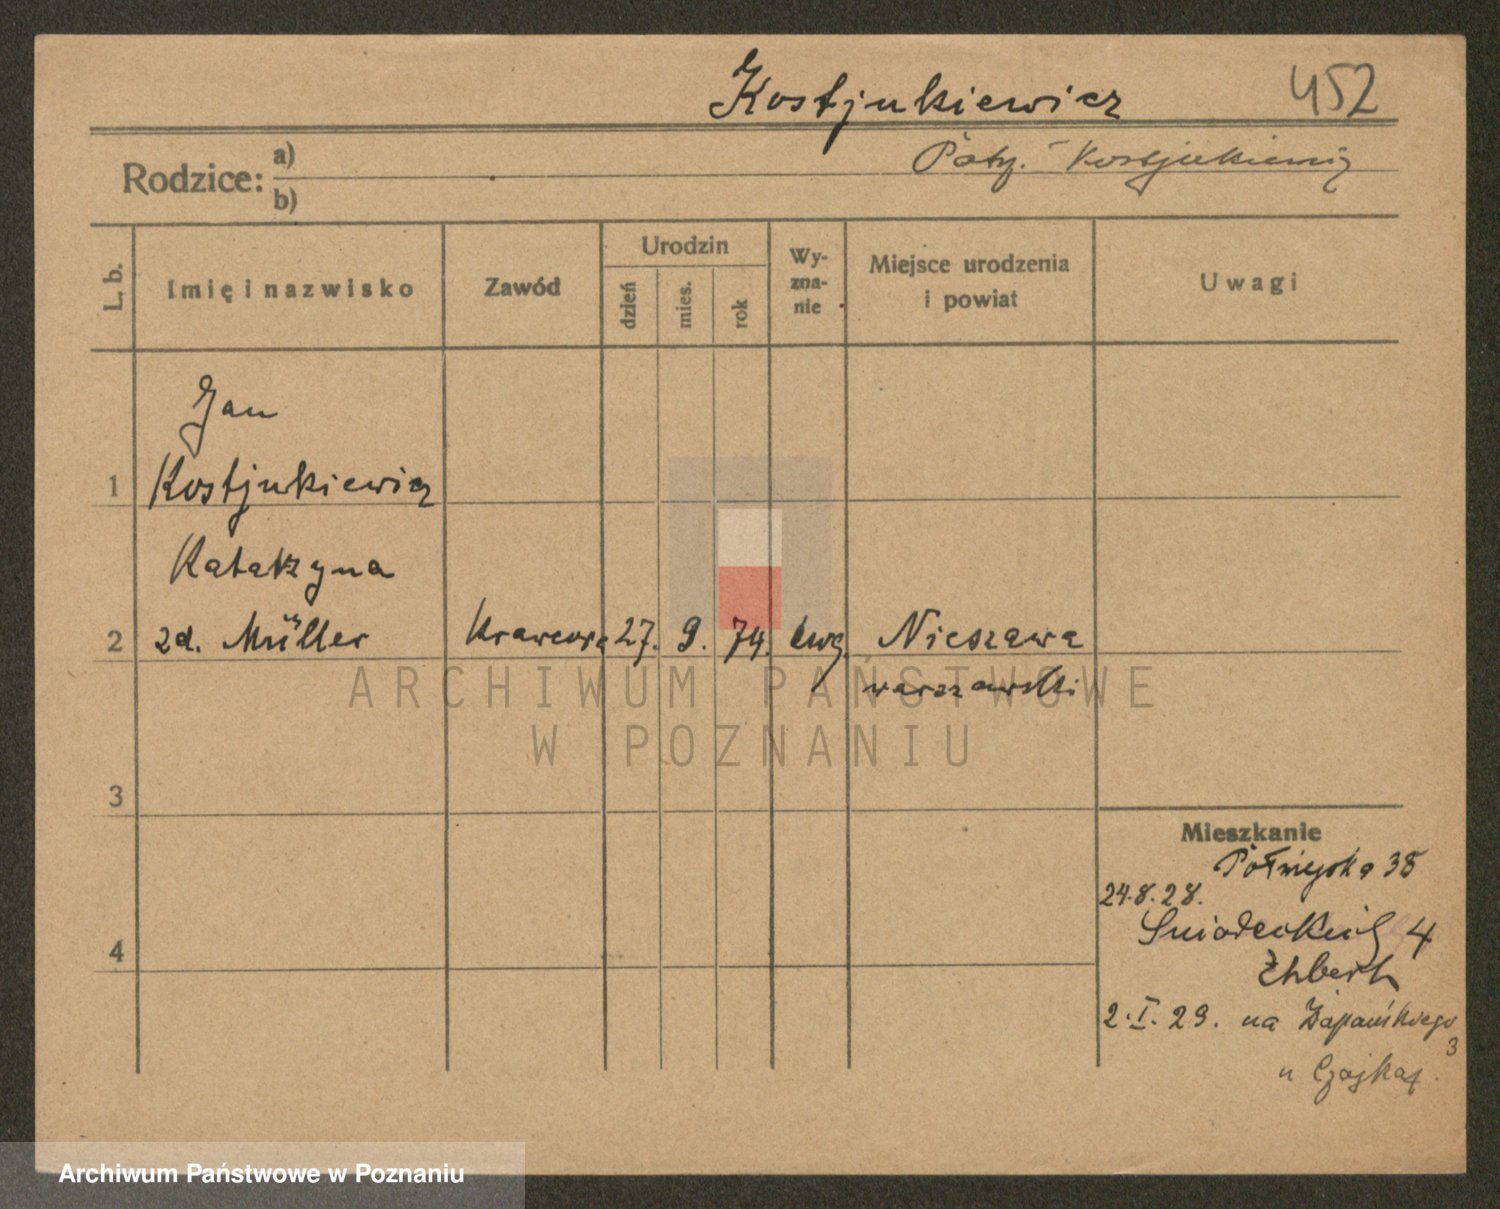 Kostjukiewicz 452
Rodzice: a)
b)
Patrz. - Kostjukiewicz
L. b.
Imię i nazwisko
Zawód
Urodzin
dzień
mies.
rok
Wy-
zna-
nie
Miejsce urodzenia
i powiat
Uwagi
Jan
1 Kostjukiewicz
Katarzyna
2 zd. Müller Krawcowa 27. 9. 74. ewg. Nieszawa
warszawski
3
4
Mieszkanie
Półwiejska 35
24.8.28.
Śniadeckich 4
2.I.29. na
3
u
ARCHIWUM PAŃSTWOWE
W POZNANIU
Archiwum Państwowe w Poznaniu